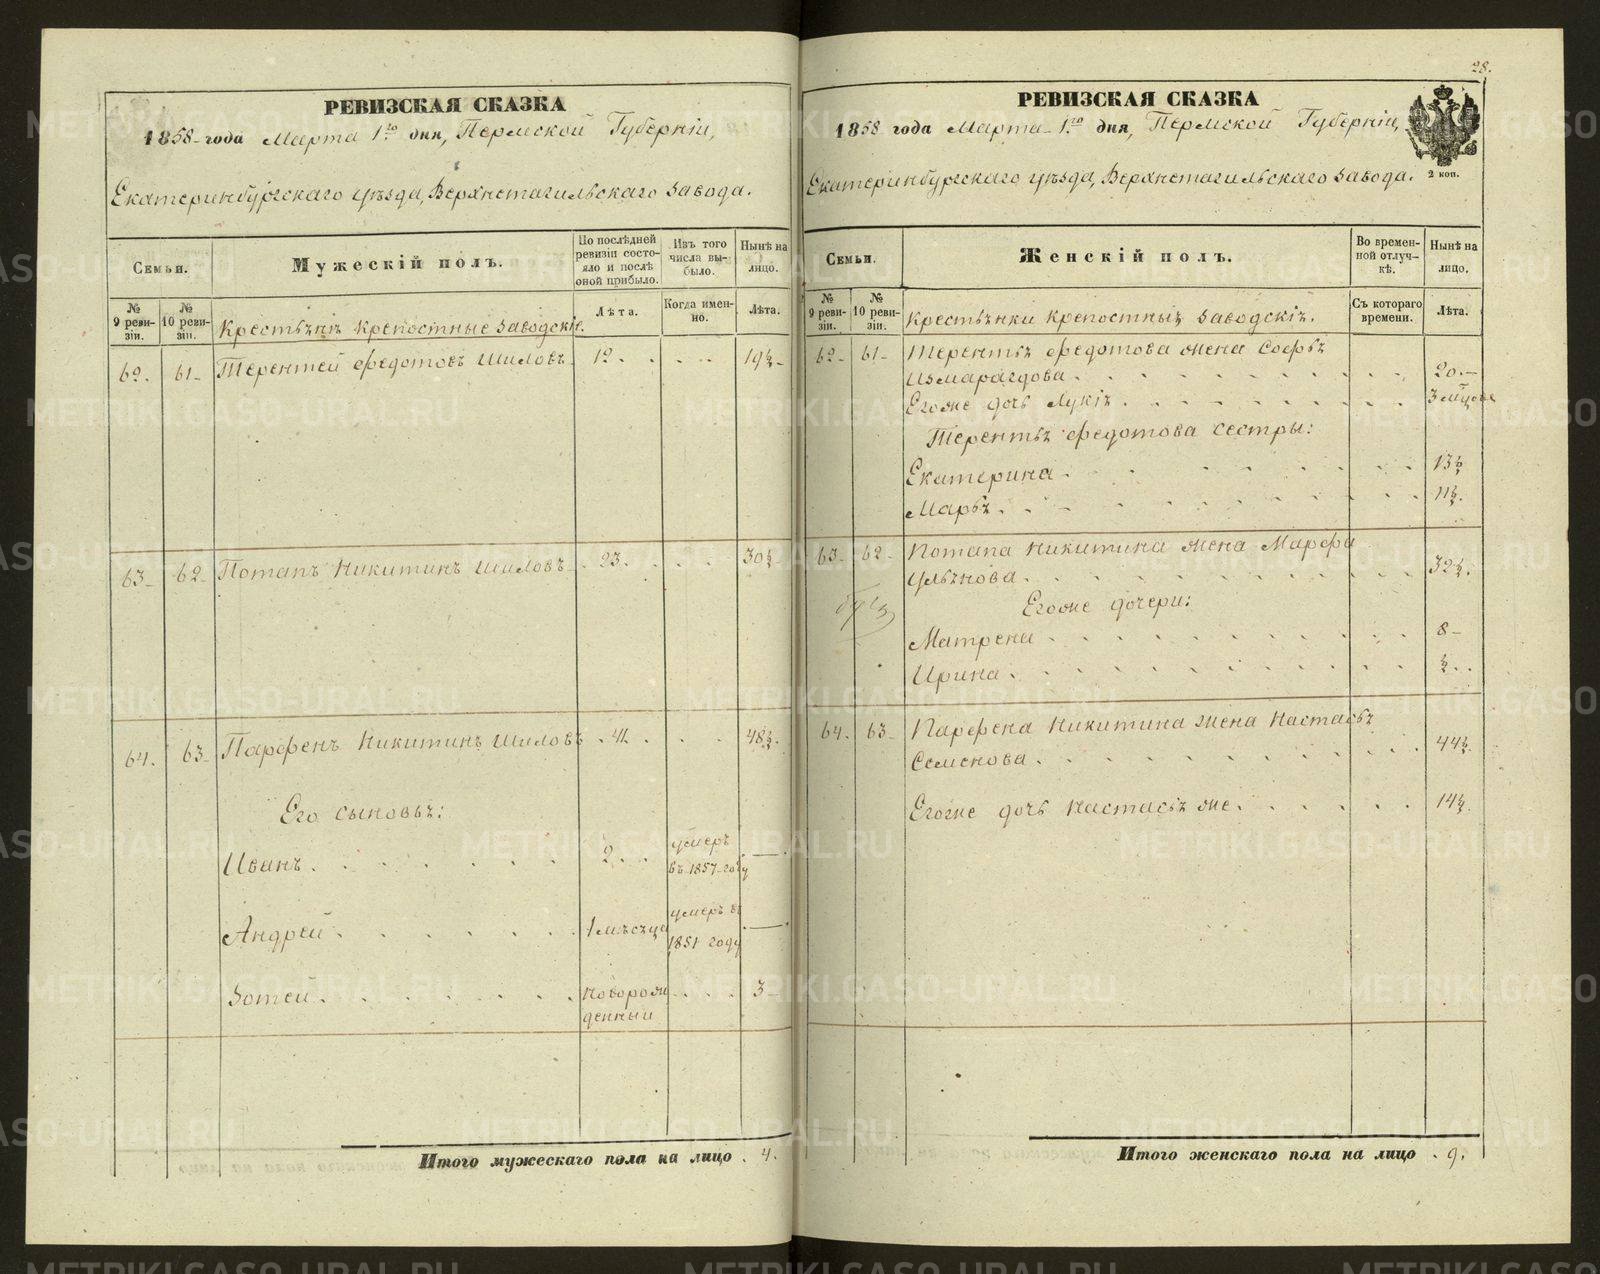 РЕВИЗСКАЯ СКАЗКА
1858 года Марта 1го дня, Пермской Губерніи,
Екатеринбургскаго уѣзда, Верхнетагильскаго завода.
Семьи.
Мужескій полъ.
По послѣдней ревизіи состояло и послѣ оной прибыло.
Изъ того числа выбыло.
Нынѣ на лицо.
№ 9 ревизіи.
№ 10 ревизіи.
Крестьяне крепостные заводскіе.
Лѣта.
Когда именно.
Лѣта.
62. 61 Терентей Федотовъ Шиловъ 12. 19½
63 62 Потапъ Никитинъ Шиловъ 23. 30½
64. 63 Парфенъ Никитинъ Шиловъ 41. 48½
Его сыновья:
Иванъ 2. умеръ въ 1857 году —
Андрей 1 мѣсяца умеръ въ 1851 году —
Зотей новорожденный 3
Итого мужескаго пола на лицо 4.
28.
РЕВИЗСКАЯ СКАЗКА
1858 года Марта 1го дня, Пермской Губерніи,
Екатеринбургскаго уѣзда, Верхнетагильскаго завода.
2 коп.
Семьи.
Женскій полъ.
Во временной отлучкѣ.
Нынѣ на лицо.
№ 9 ревизіи.
№ 10 ревизіи.
Крестьянки крепостныя заводскія.
Съ котораго времени.
Лѣта.
62 61 Терентья Федотова жена Софья
Измарагдова 20
Егоже дочь Лукія 3 мѣсяца
Терентья Федотова сестры:
Екатерина 13½
Марья 11½
63 62 Потапа Никитина жена Марфа
Ульянова 32½
Егоже дочери:
Матрена 8
Ирина ½
64. 63 Парфена Никитина жена Настасья
Семенова 44½
Егоже дочь Настасья же 14½
Итого женскаго пола на лицо 9.
METRIKI.GASO-URAL.RU